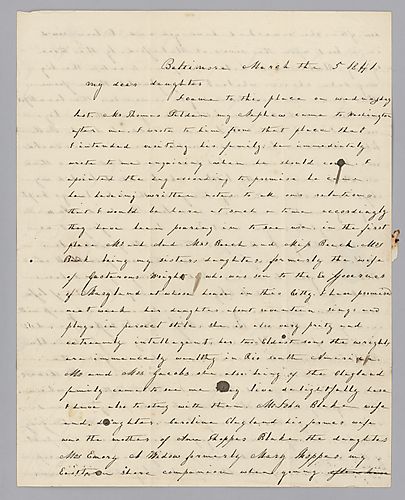 Baltimore March the 5 1841
my dear daughter
I came to this place on wednsday
last Mr Thomas Tilden my Nephew came to Wilmington
after me. I wrote to him from that place that
I intended visiting his family he immediately
wrote to me enquiring when he should come I
apointed the day according to promise he came
he having written notes to all our relations
that I would be here at such a time accordingly
they have been pouring in to see me in the first
place Mr and And Mrs Beach and Miss Beach Mrs
Beach being my sisters daughter, formerly the wife
of Wright who was son to the Governor
of Maryland at whose house in this City I have promised
next week her daughter about seventeen sings and
plays in purest stile she is also very prety and
extremely intellegent, her two Eldest sons the wrights
are immencely wealthy in Rio south American
Mr and Mrs Jacobs she also being of the Clayland
family came to see me they live delightfully here
I have also to stay with them. Mr John Blake wife
and daughters. Caroline Clayland his former wife
was the mother of Anne Blake, the daughter
Mrs Emory A Widow formerly Mary my
companion when young